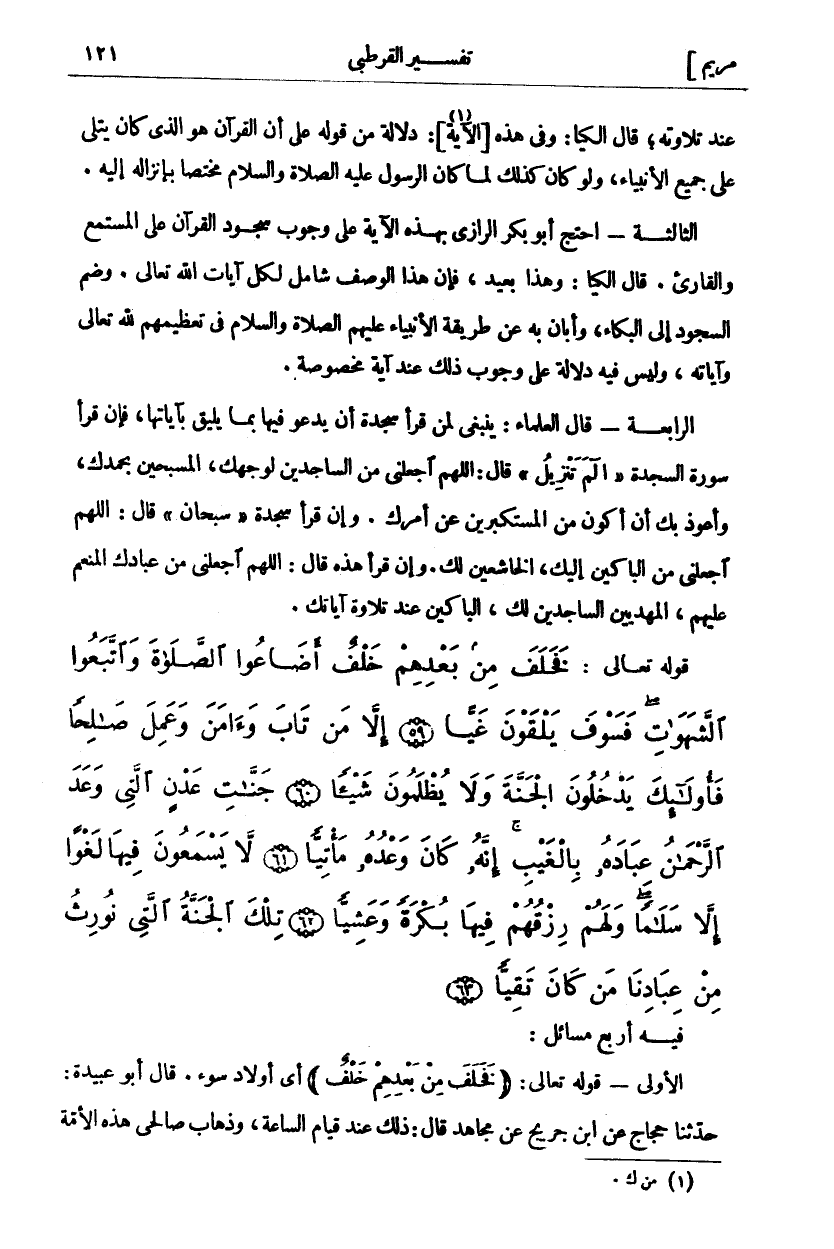 مريم ] تفســـير القرطبى ١٢١
عند تلاوته؛ قال الكيا: وفى هذه [الآية](١): دلالة من قوله على أن القرآن هو الذى كان يتلى
على جميع الأنبياء، ولو كان كذلك لمـا كان الرسول عليه الصلاة والسلام مختصا بإنزاله إليه .
الثالثــة — احتج أبو بكر الرازى بهـذه الآية على وجوب سجـود القرآن على المستمع
والقارئ . قال الكيا : وهذا بعيد ، فإن هذا الوصف شامل لكل آيات الله تعالى . وضم
السجود إلى البكاء، وأبان به عن طريقة الأنبياء عليهم الصلاة والسلام فى تعظيمهم لله تعالى
وآياته ، وليس فيه دلالة على وجوب ذلك عند آية مخصوصة .
الرابعــة — قال العلماء : ينبغى لمن قرأ سجدة أن يدعو فيها بمـا يليق بآياتها، فإن قرأ
سورة السجدة « الٓمٓ تَنْزِيلُ » قال: اللهم ٱجعلنى من الساجدين لوجهك، المسبحين بحمدك،
وأعوذ بك أن أكون من المستكبرين عن أمرك . وإن قرأ سجدة « سبحان » قال : اللهم
ٱجعلنى من الباكين إليك، الخاشعين لك. وإن قرأ هذه قال : اللهم ٱجعلنى من عبادك المنعم
عليهم ، المهديين الساجدين لك ، الباكين عند تلاوة آياتك .
قوله تعـالى : فَخَلَفَ مِنۢ بَعْدِهِمْ خَلْفٌ أَضَاعُوا ٱلصَّلَوٰةَ وَٱتَّبَعُوا
ٱلشَّهَوَٰتِ ۖ فَسَوْفَ يَلْقَوْنَ غَيًّـا ٥٩ إِلَّا مَن تَابَ وَءَامَنَ وَعَمِلَ صَـٰلِحًا
فَأُولَـٰٓئِكَ يَدْخُلُونَ ٱلْجَنَّةَ وَلَا يُظْلَمُونَ شَيْـًٔا ٦٠ جَنَّـٰتِ عَدْنٍ ٱلَّتِى وَعَدَ
ٱلرَّحْمَـٰنُ عِبَادَهُۥ بِٱلْغَيْبِ ۚ إِنَّهُۥ كَانَ وَعْدُهُۥ مَأْتِيًّا ٦١ لَّا يَسْمَعُونَ فِيهَا لَغْوًا
إِلَّا سَلَـٰمًا ۖ وَلَهُمْ رِزْقُهُمْ فِيهَا بُكْرَةً وَعَشِيًّا ٦٢ تِلْكَ ٱلْجَنَّةُ ٱلَّتِى نُورِثُ
مِنْ عِبَادِنَا مَن كَانَ تَقِيًّا ٦٣
فيــه أربع مسائل :
الأولى — قوله تعالى: ﴿ فَخَلَفَ مِنْ بَعْدِهِمْ خَلْفٌ ﴾ أى أولاد سوء . قال أبو عبيدة :
حدثنا حجاج عن ابن جريج عن مجاهد قال : ذلك عند قيام الساعة ، وذهاب صالحى هذه الأمة
(١) من ك .